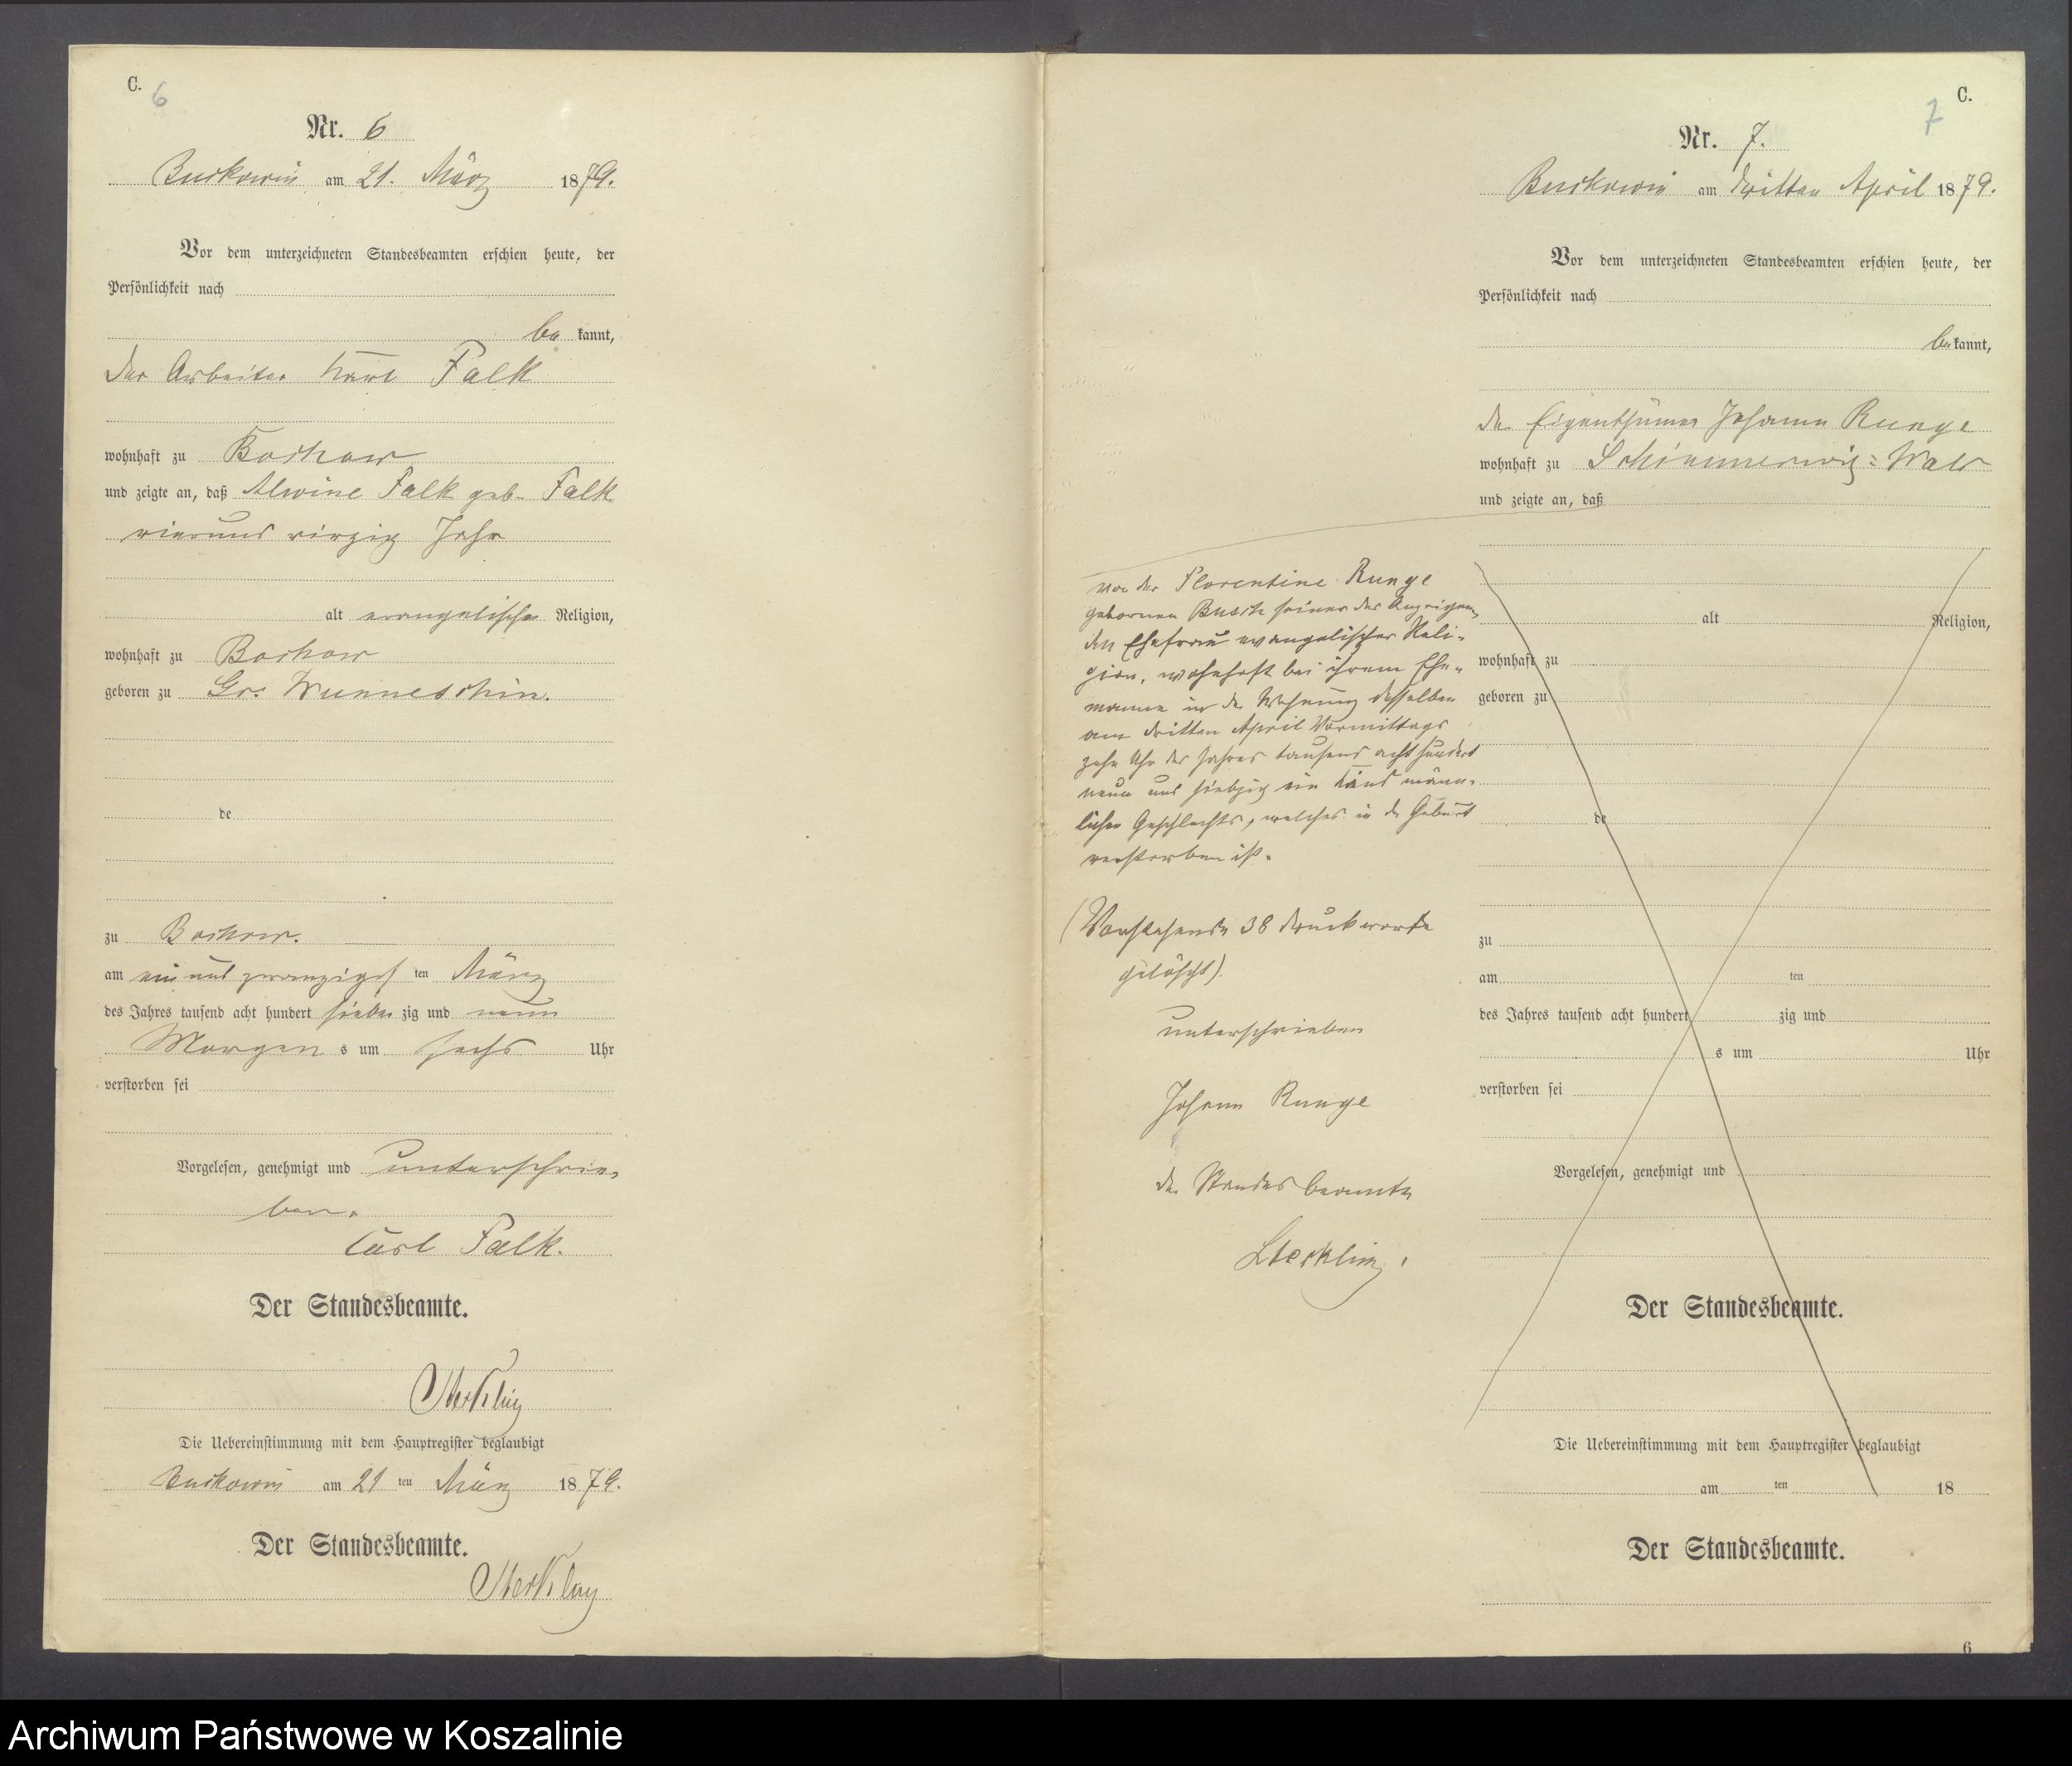 C.
6
Nr. 6
Buckowin am 21. März 1879.
Vor dem unterzeichneten Standesbeamten erschien heute, der
Persönlichkeit nach
be kannt,
der Arbeiter Karl Falk
wohnhaft zu Boschow
und zeigte an, daß Alwine Falk geb. Falk
vierund virzig Jahr
alt evangelischer Religion,
wohnhaft zu Boschow
geboren zu Gr. Wunneschin.
de
zu Boschow.
am ein und zwanzigst ten März
des Jahres tausend acht hundert sieben zig und neun
Morgen s um sechs Uhr
verstorben sei
Vorgelesen, genehmigt und unterschrie-
ben.
Carl Falk.
Der Standesbeamte.
Sterkling
Die Uebereinstimmung mit dem Hauptregister beglaubigt
Buckowin am 21 ten März 1879.
Der Standesbeamte.
Sterkling
C.
7
Nr. 7.
Buckowin am dritten April 1879.
Vor dem unterzeichneten Standesbeamten erschien heute, der
Persönlichkeit nach
be kannt,
der Eigenthümer Johann Runge
wohnhaft zu Schimmerwitz = Wald
und zeigte an, daß
von der Florentine Runge
gebornen Busch seiner des Anzeigen-
den Ehefrau evangelischer Reli-
gion, wohnhaft bei ihrem Ehe-
manne in der Wohnung desselben
am dritten April Vormittags
zehn Uhr des Jahres tausend acht hundert
neun und siebzig ein Kind männ-
lichen Geschlechts, welches in der Geburt
verstorben ist.
(Vorstehende 38 Druckworte
gelöscht).
unterschrieben
Johann Runge
der Standesbeamte
Sterkling
alt Religion,
wohnhaft zu
geboren zu
de
zu
am ten
des Jahres tausend acht hundert zig und
s um Uhr
verstorben sei
Vorgelesen, genehmigt und
Der Standesbeamte.
Die Uebereinstimmung mit dem Hauptregister beglaubigt
am ten 18
Der Standesbeamte.
6
Archiwum Państwowe w Koszalinie